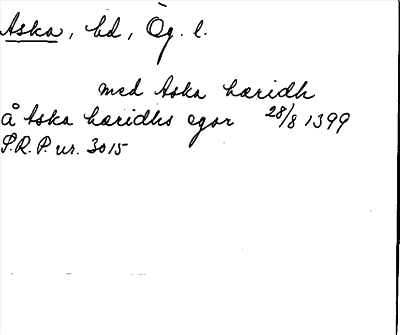 Aska, hd, Ög. l.
med Aska hæridh
å Aska hæridhs egor 28/8 1399
S.R.P. nr. 3015